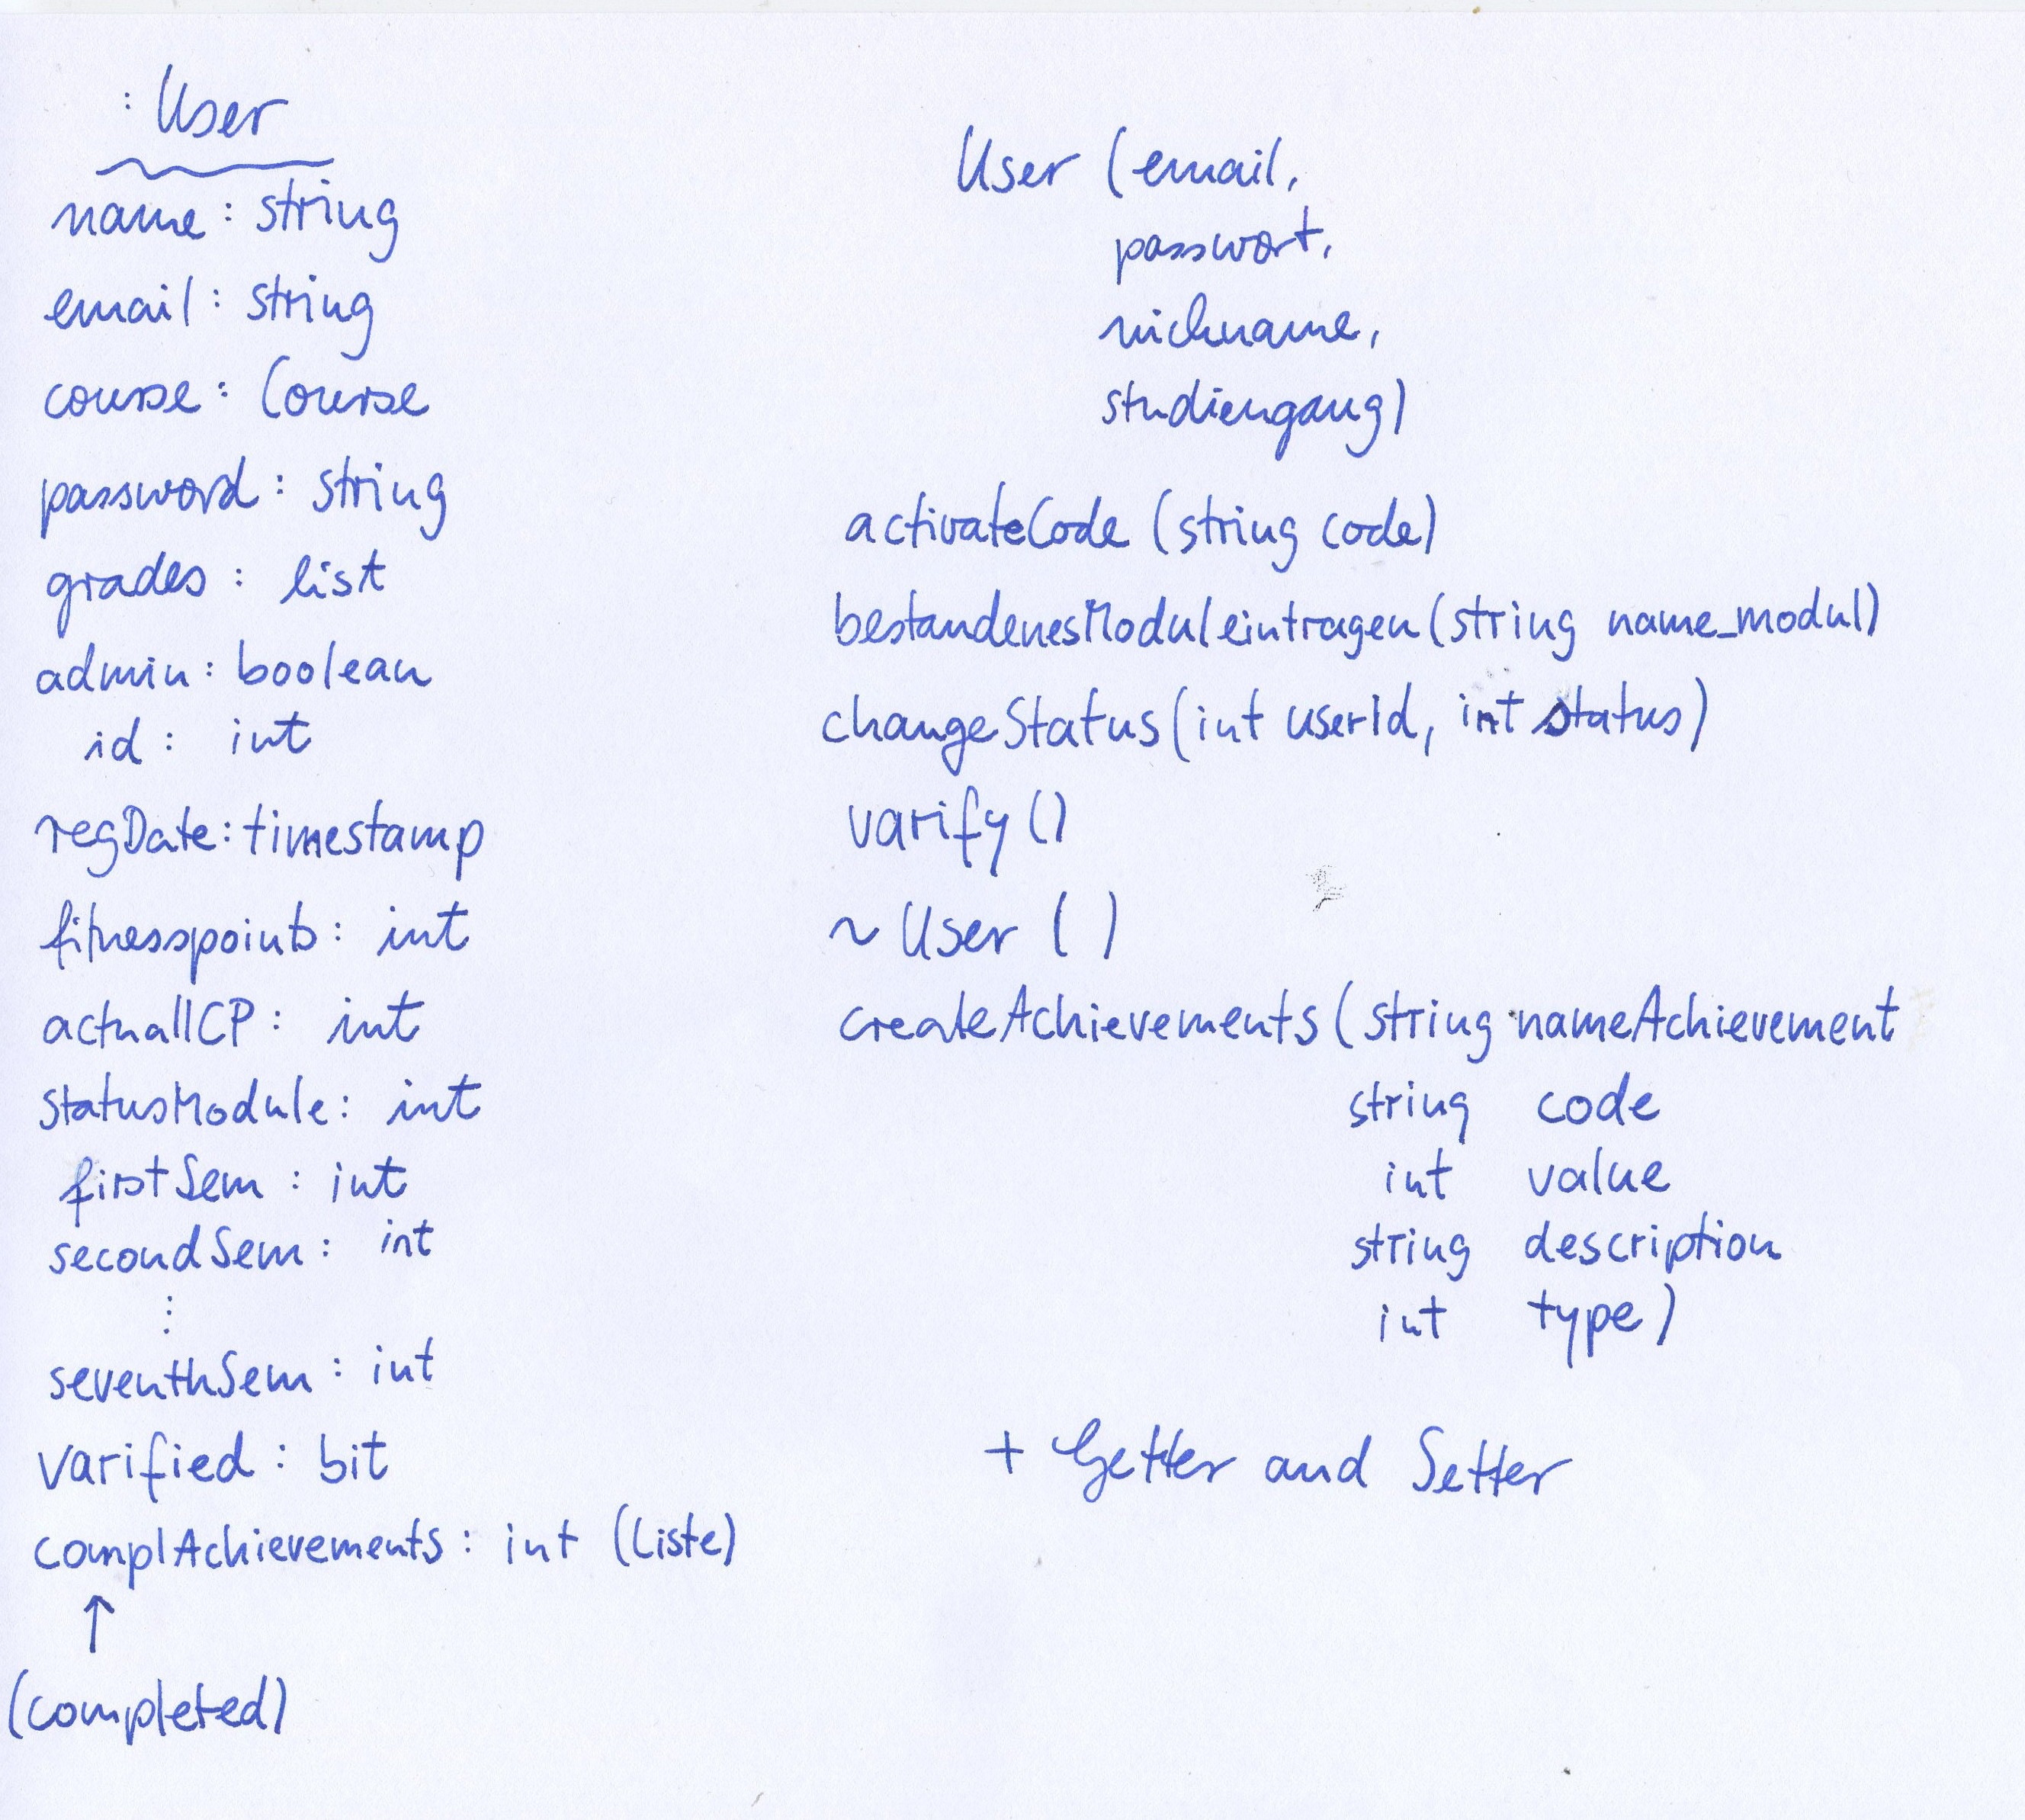 : User
name : string
email : string
course : Course
password : string
grades : list
admin : boolean
id : int
regDate : timestamp
fitnesspoints : int
actuallCP : int
statusModule : int
firstSem : int
secondSem : int
⋮
seventhSem : int
varified : bit
complAchievements : int (Liste)
↑
(completed)
User (email,
passwort,
nickname,
studiengang)
activateCode (string code)
bestandenesModuleintragen (string name_modul)
changeStatus (int userId, int status)
varify ()
~ User ( )
createAchievements (string nameAchievement
string code
int value
string description
int type)
+ Getter and Setter